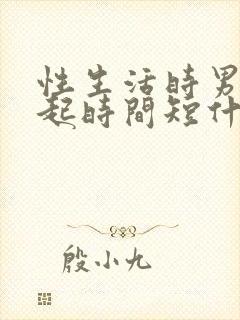 性生活時男
起時間短什
殷小九